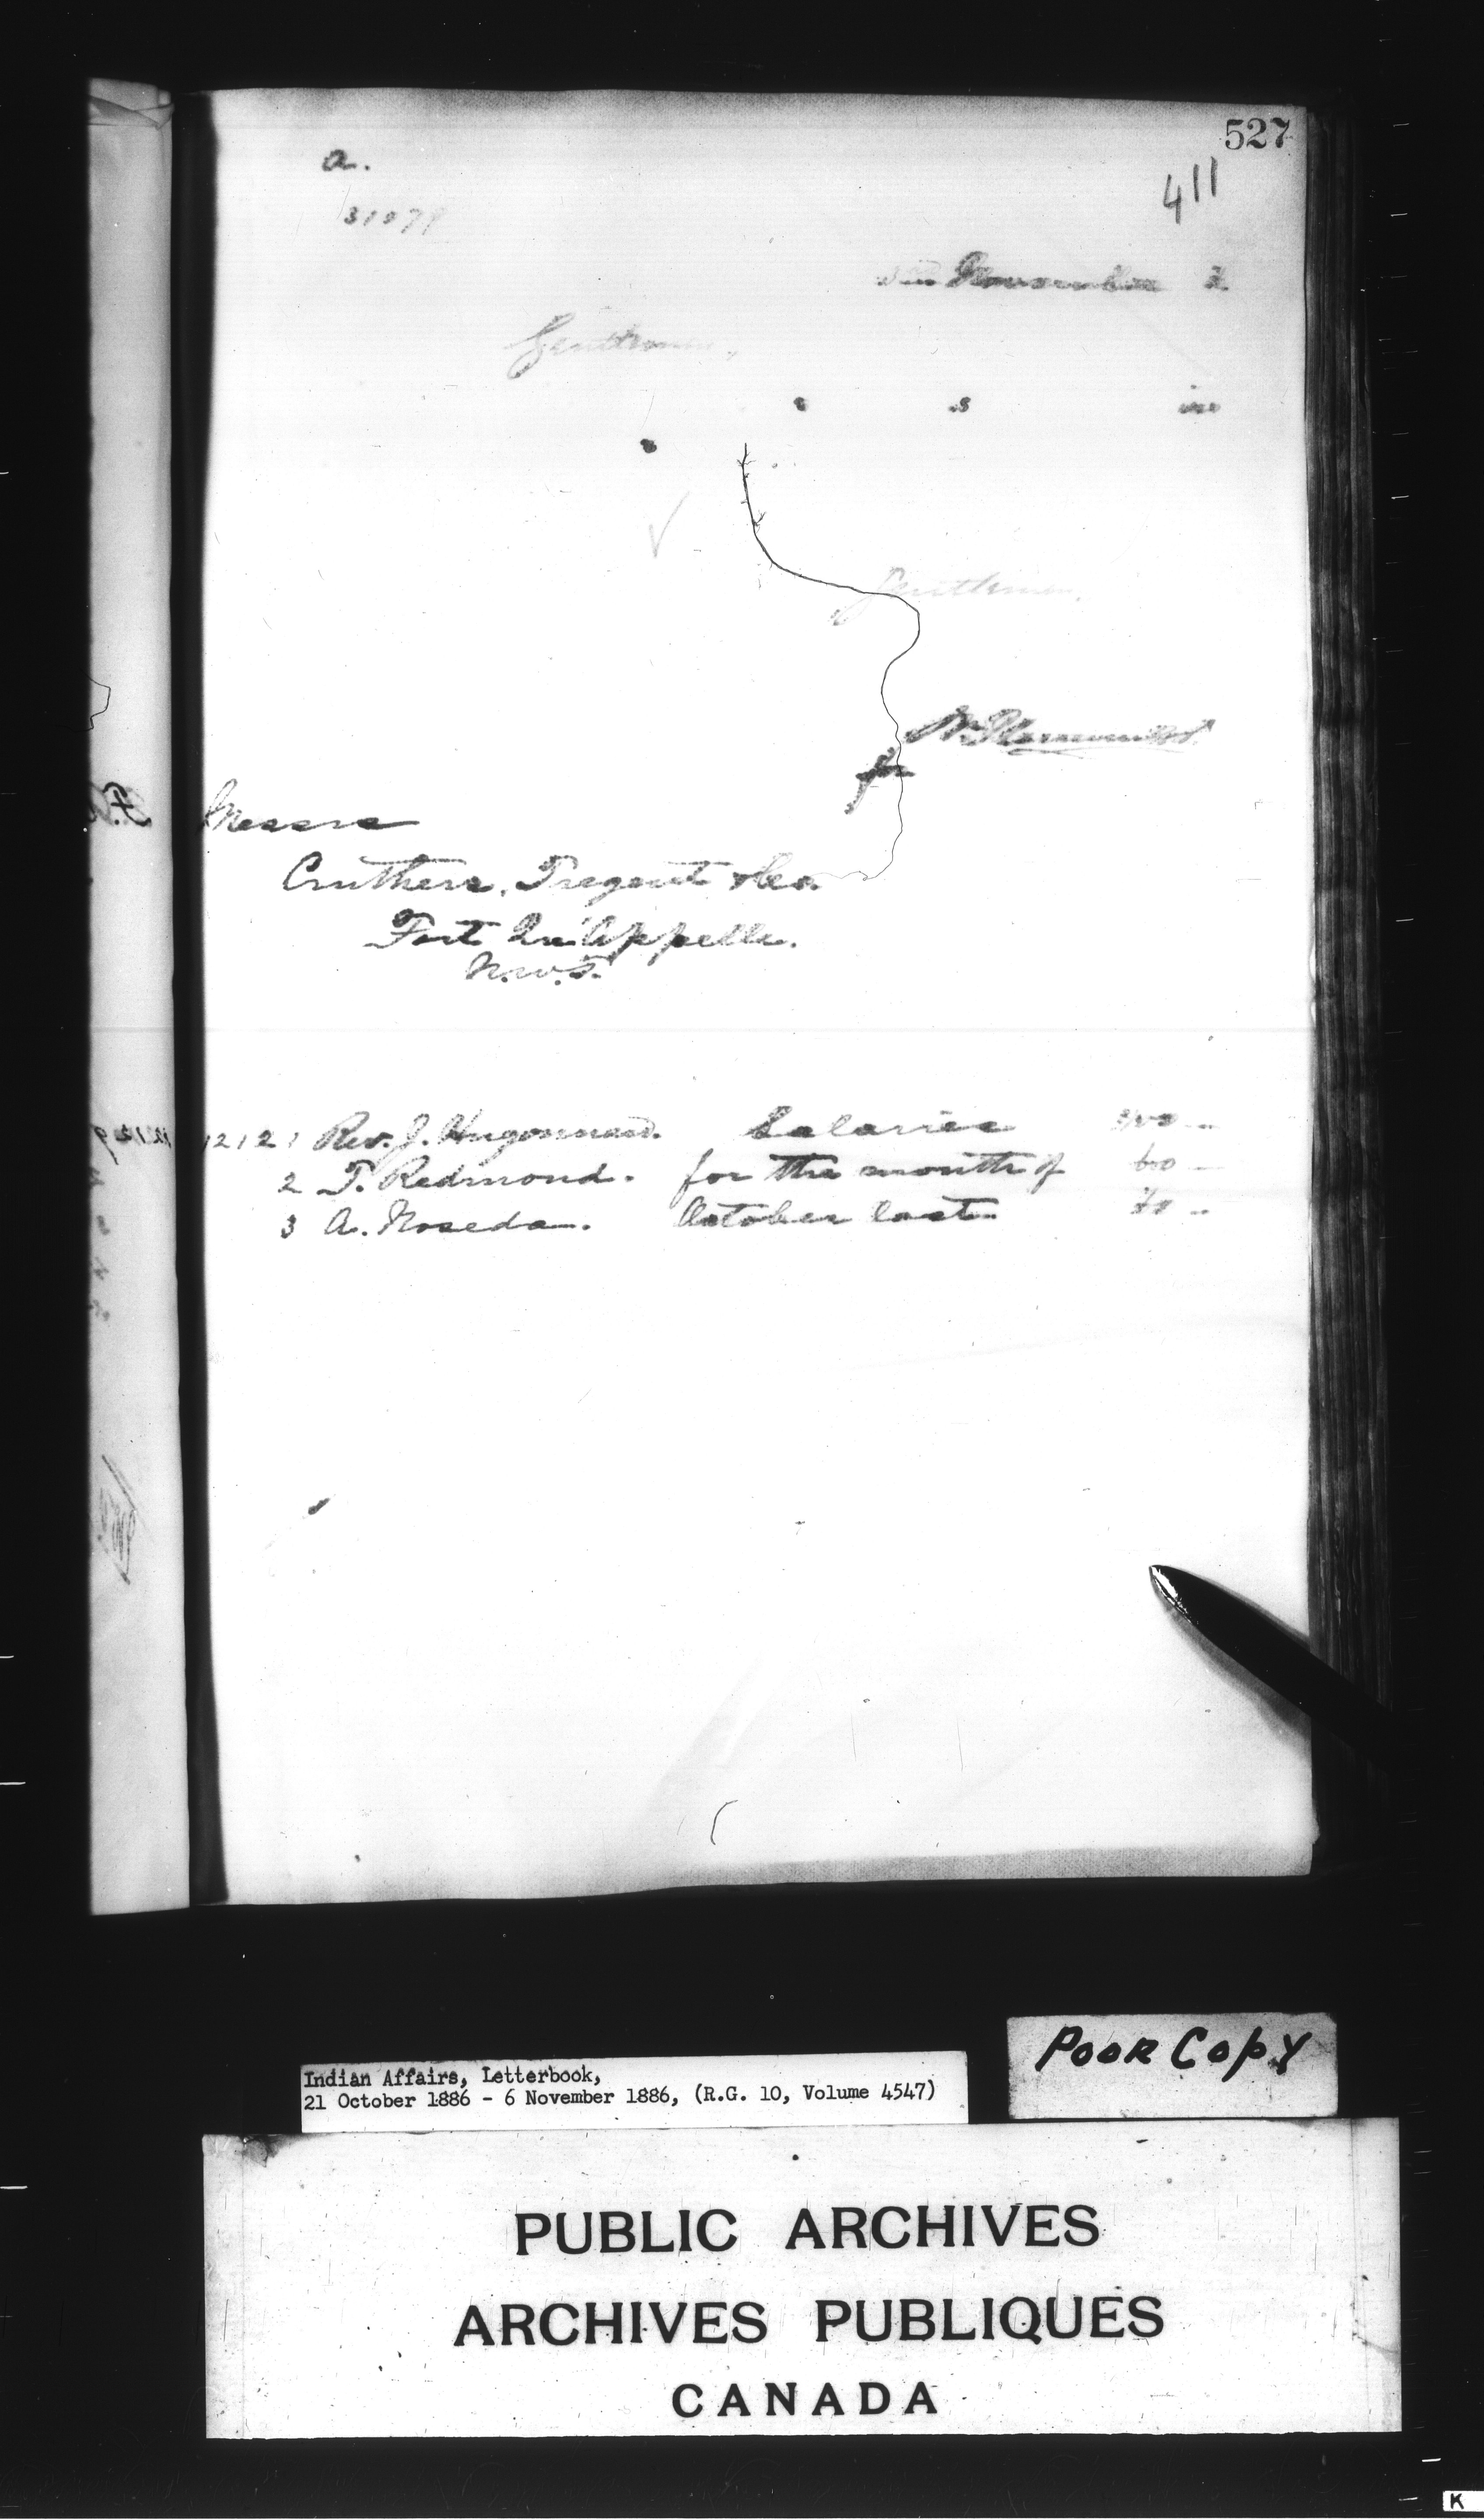 527
a.
411
31079
November 2
Gentlemen,
s in
Gentlemen,
for
Messrs
Cruthers, Tregent & Co.
Fort Qu'Appelle.
N.W.T.
12121 Rev. J. Hugonnard. Salaries
2 T. Redmond. for the month of 60
3 A. Noseda. October last
Poor Copy
Indian Affairs, Letterbook,
21 October 1886 - 6 November 1886, (R.G. 10, Volume 4547)
PUBLIC ARCHIVES
ARCHIVES PUBLIQUES
CANADA
K